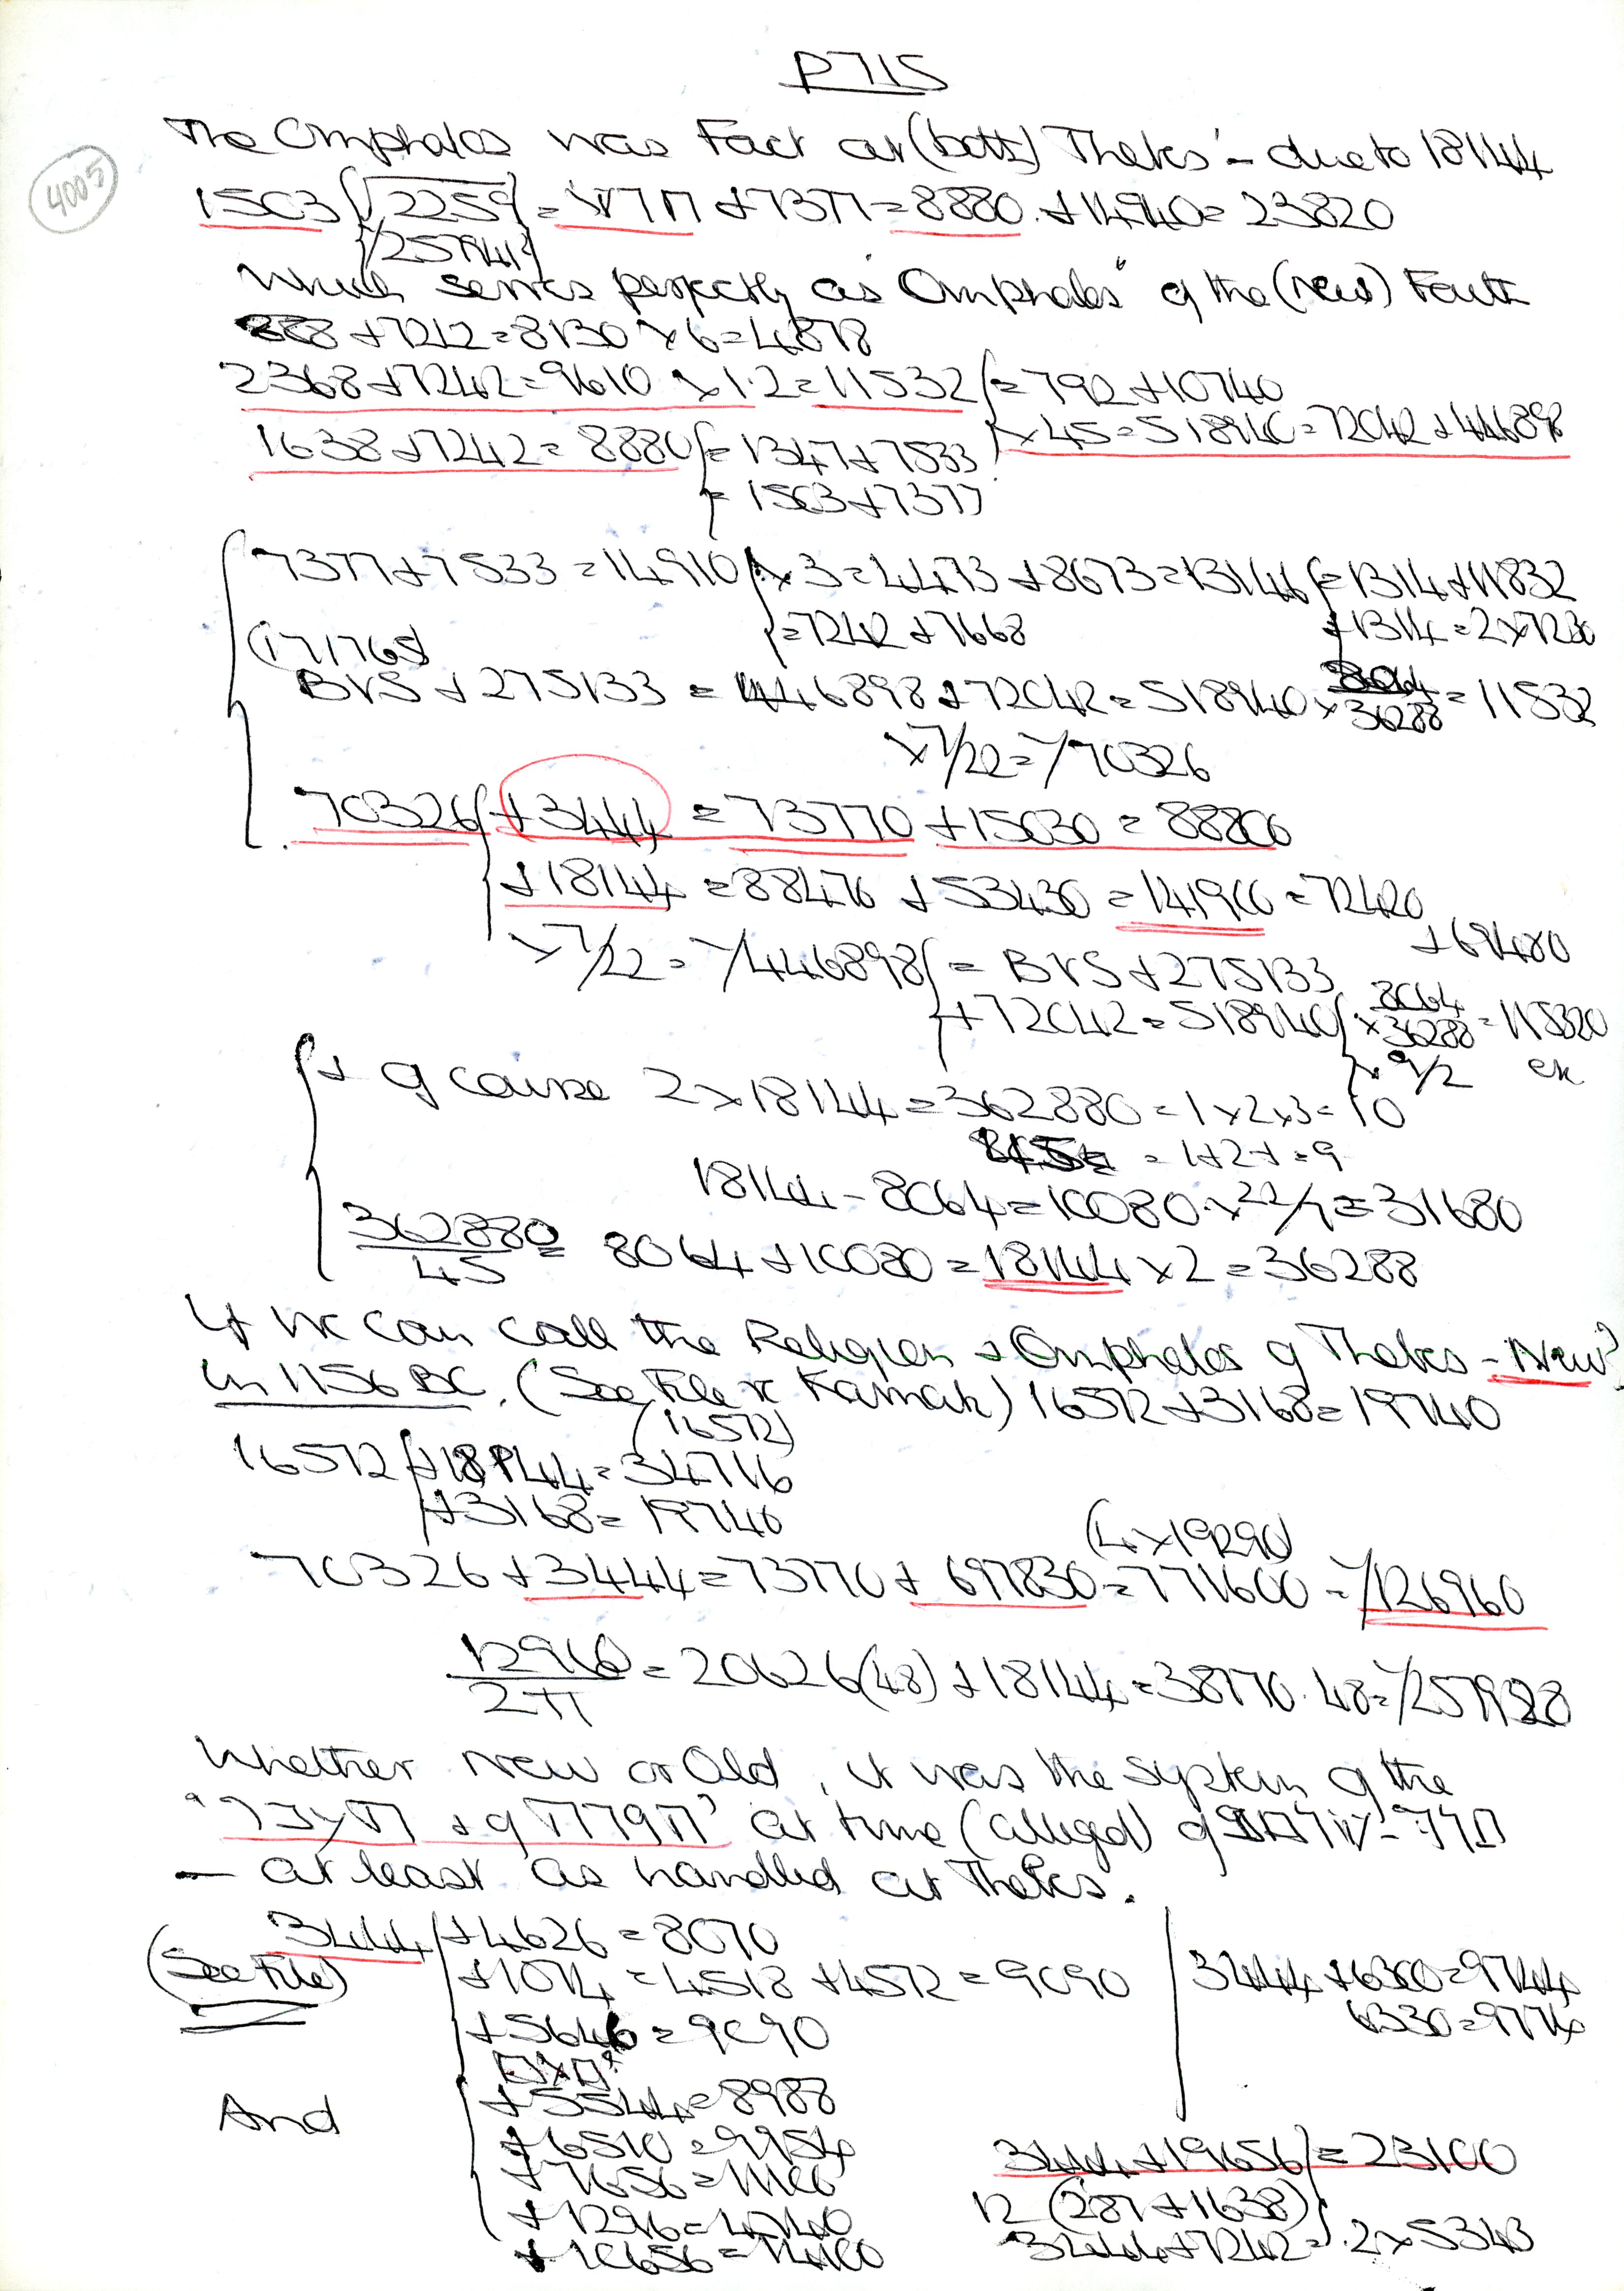 P715
4005
The Omphalos was Fact at (both) Thebes - due to 18144
1503 {√2259 = 717 + 7377 = 8880. + 14940 = 23820
1/257941
Which serves perfectly as "Omphalos" of the (new) Faith
888 + 7242 = 8130 × 6 = 4878
2368 + 7242 = 9610 × 1.2 = 11532 { = 792 + 10740
× 45 = 518940 = 72042 + 446898
1638 + 7242 = 8880 { = 1347 + 7533
= 1503 + 7377
7377 + 7533 = 14910 { × 3 = 4473 + 8673 = 13146 { = 1314 + 11832
= 7242 + 7668
(171765)
BVS + 275133 = 446898 + 72042 = 518940 × 8064/36288 = 11532
× 7/22 = 1/70326
70326 { + 3444 = 73770 + 15030 = 88800
+ 18144 = 88470 + 53430 = 141900 = 72420
+ 69480
× 7/22 = 1/446898 { = BVS + 275133
+ 72042 = 518940 { × 8064/36288 = 115320
× 9/2
+ of course 2 × 18144 = 362880 = 1 × 2 × 3 = 10
= 1 + 2 + = 9
18144 - 8064 = 10080 × 22/7 = 31680
362880/45 = 8064 + 10080 = 18144 × 2 = 36288
If we can call the Religion + Omphalos of Thebes - New?
in 1156 BC. (See File x Karnak) 16572 + 3168 = 19740
(16572)
16572 { + 18144 = 34716
+ 3168 = 19740
(4 × 19290)
70326 + 3444 = 73770 + 697830 = 771600 = 1/126960
12960/2π = 20626(48) + 18144 = 38770.48 = 1/257928
Whether New or Old, it was the system of the
at time (alleged) of
- at least as handled at Thebes.
3444 { + 4626 = 8070
(See File)
+ 1074 = 4518 + 4572 = 9090
+ 5646 = 9090
3444 + 6300 = 9744
6330 = 9774
And
+ 5544 = 8988
+ 6510 = 9954
+ 7656 = 11100
+ 1296 = 4740
+ 10656 = 14100
3444 + 19656 } = 23100
12 (287 + 1638)
3444 + 7242 = 2 × 5343